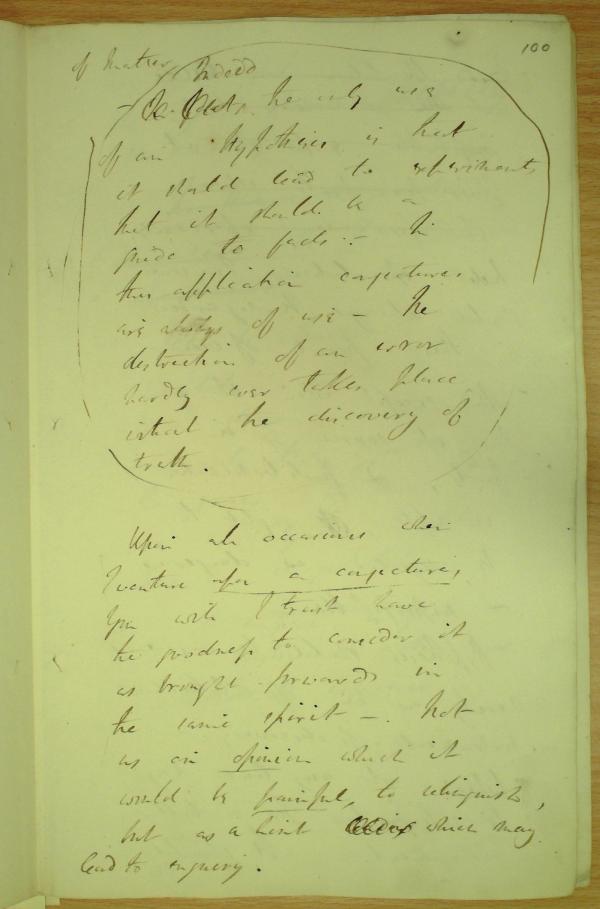 100
of matter. Indeed
- the only use
of an Hypothesis is that
it should lead to experiments
that it should be a
guide to facts :- In
this application conjectures
are always of use - The
destruction of an error
hardly ever takes place
without the discovery of
truth.
Upon all occasions when
I venture upon a conjecture,
you will I trust have
the goodness to consider it
as brought forwards in
the same spirit -. Not
as an opinion which it
would be painful, to relinquish,
but as a hint which may
lead to enquiry.